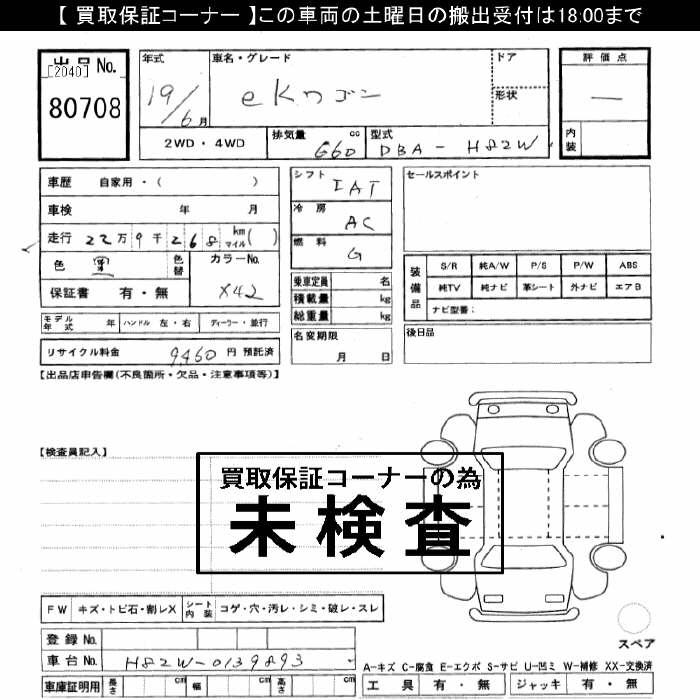 【 買取保証コーナー 】この車両の土曜日の搬出受付は18:00まで
出品 No.
[2040]
80708
年式
19/6月
車名・グレード
eKワゴン
ドア
形状
評価点
—
内装
2WD・4WD
排気量 cc
660
型式
DBA - H82W
車歴 自家用・( )
車検 年 月
走行 22万9千268 km マイル ( )
色 黒
色替
カラーNo.
X42
保証書 有・無
シフト
IAT
冷房
AC
燃料
G
乗車定員 名
積載量 kg
総重量 kg
セールスポイント
装備品
S/R 純A/W P/S P/W ABS
純TV 純ナビ 革シート 外ナビ エアB
ナビ型番：
モデル年式 年 ハンドル 左・右 ディーラー・並行
リサイクル料金 9,460 円 預託済
名変期限
月 日
後日品
【出品店申告欄(不良箇所・欠品・注意事項等)】
【検査員記入】
買取保証コーナーの為
未検査
FW キズ・トビ石・割レX シート内装 コゲ・穴・汚レ・シミ・破レ・スレ
スペア
登録 No.
車台 No. H82W-0139893
A-キズ C-腐食 E-エクボ S-サビ U-凹ミ W-補修 XX-交換済
車庫証明用 長さ cm 幅 cm 高さ cm
工具 有・無 ジャッキ 有・無